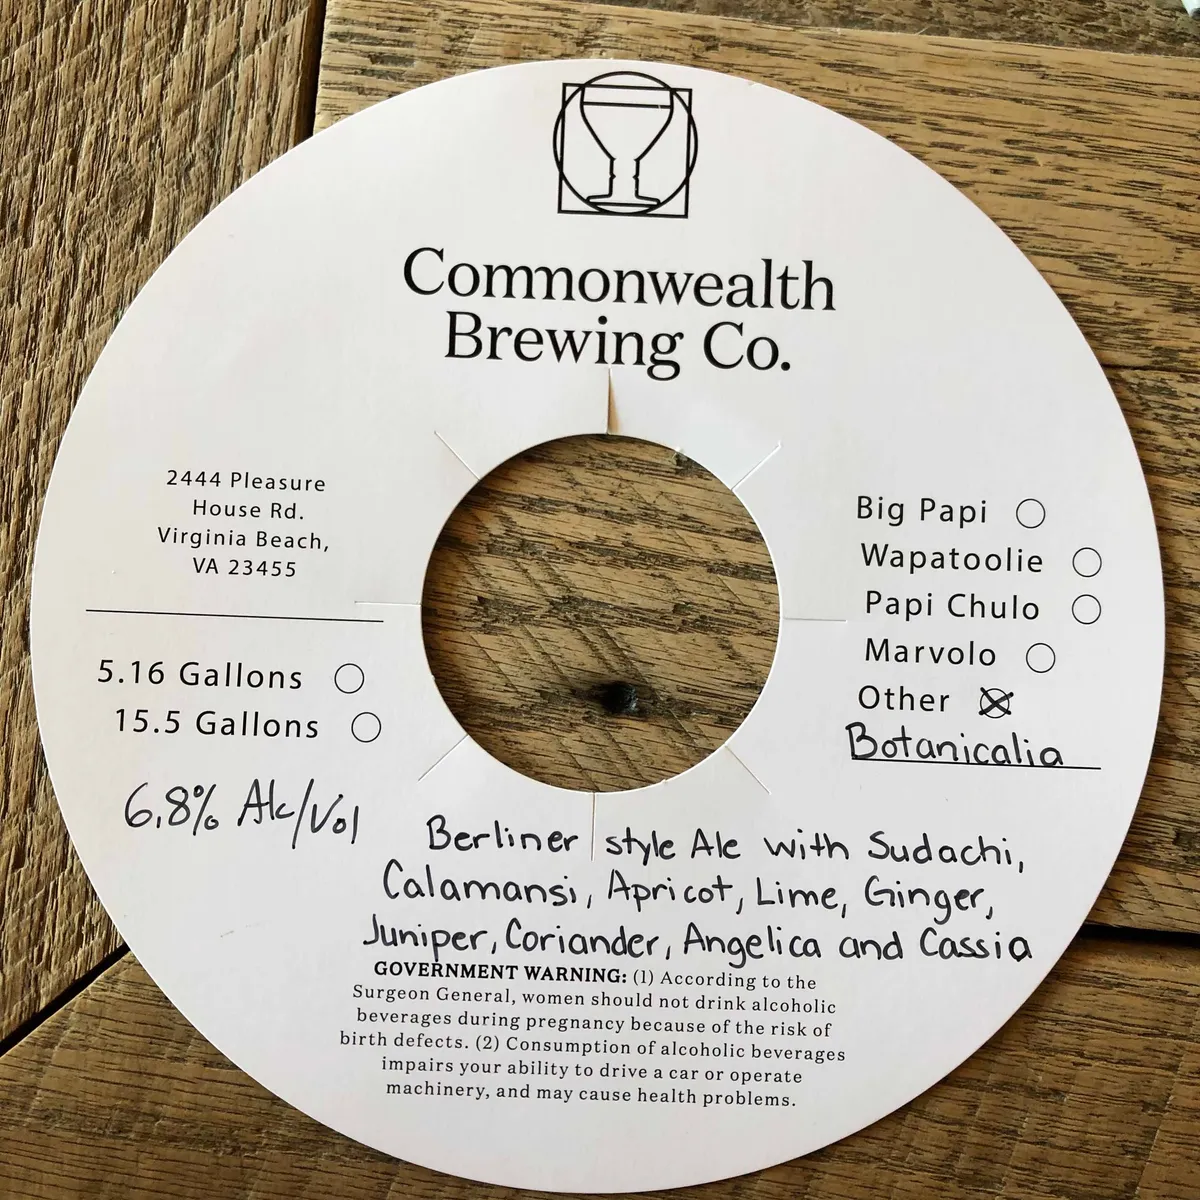 Commonwealth
Brewing Co.
2444 Pleasure
House Rd.
Virginia Beach,
VA 23455
5.16 Gallons
15.5 Gallons
6.8% Alc/Vol
Big Papi
Wapatoolie
Papi Chulo
Marvolo
Other
Botanicalia
Berliner style Ale with Sudachi,
Calamansi, Apricot, Lime, Ginger,
Juniper, Coriander, Angelica and Cassia
GOVERNMENT WARNING: (1) According to the
Surgeon General, women should not drink alcoholic
beverages during pregnancy because of the risk of
birth defects. (2) Consumption of alcoholic beverages
impairs your ability to drive a car or operate
machinery, and may cause health problems.